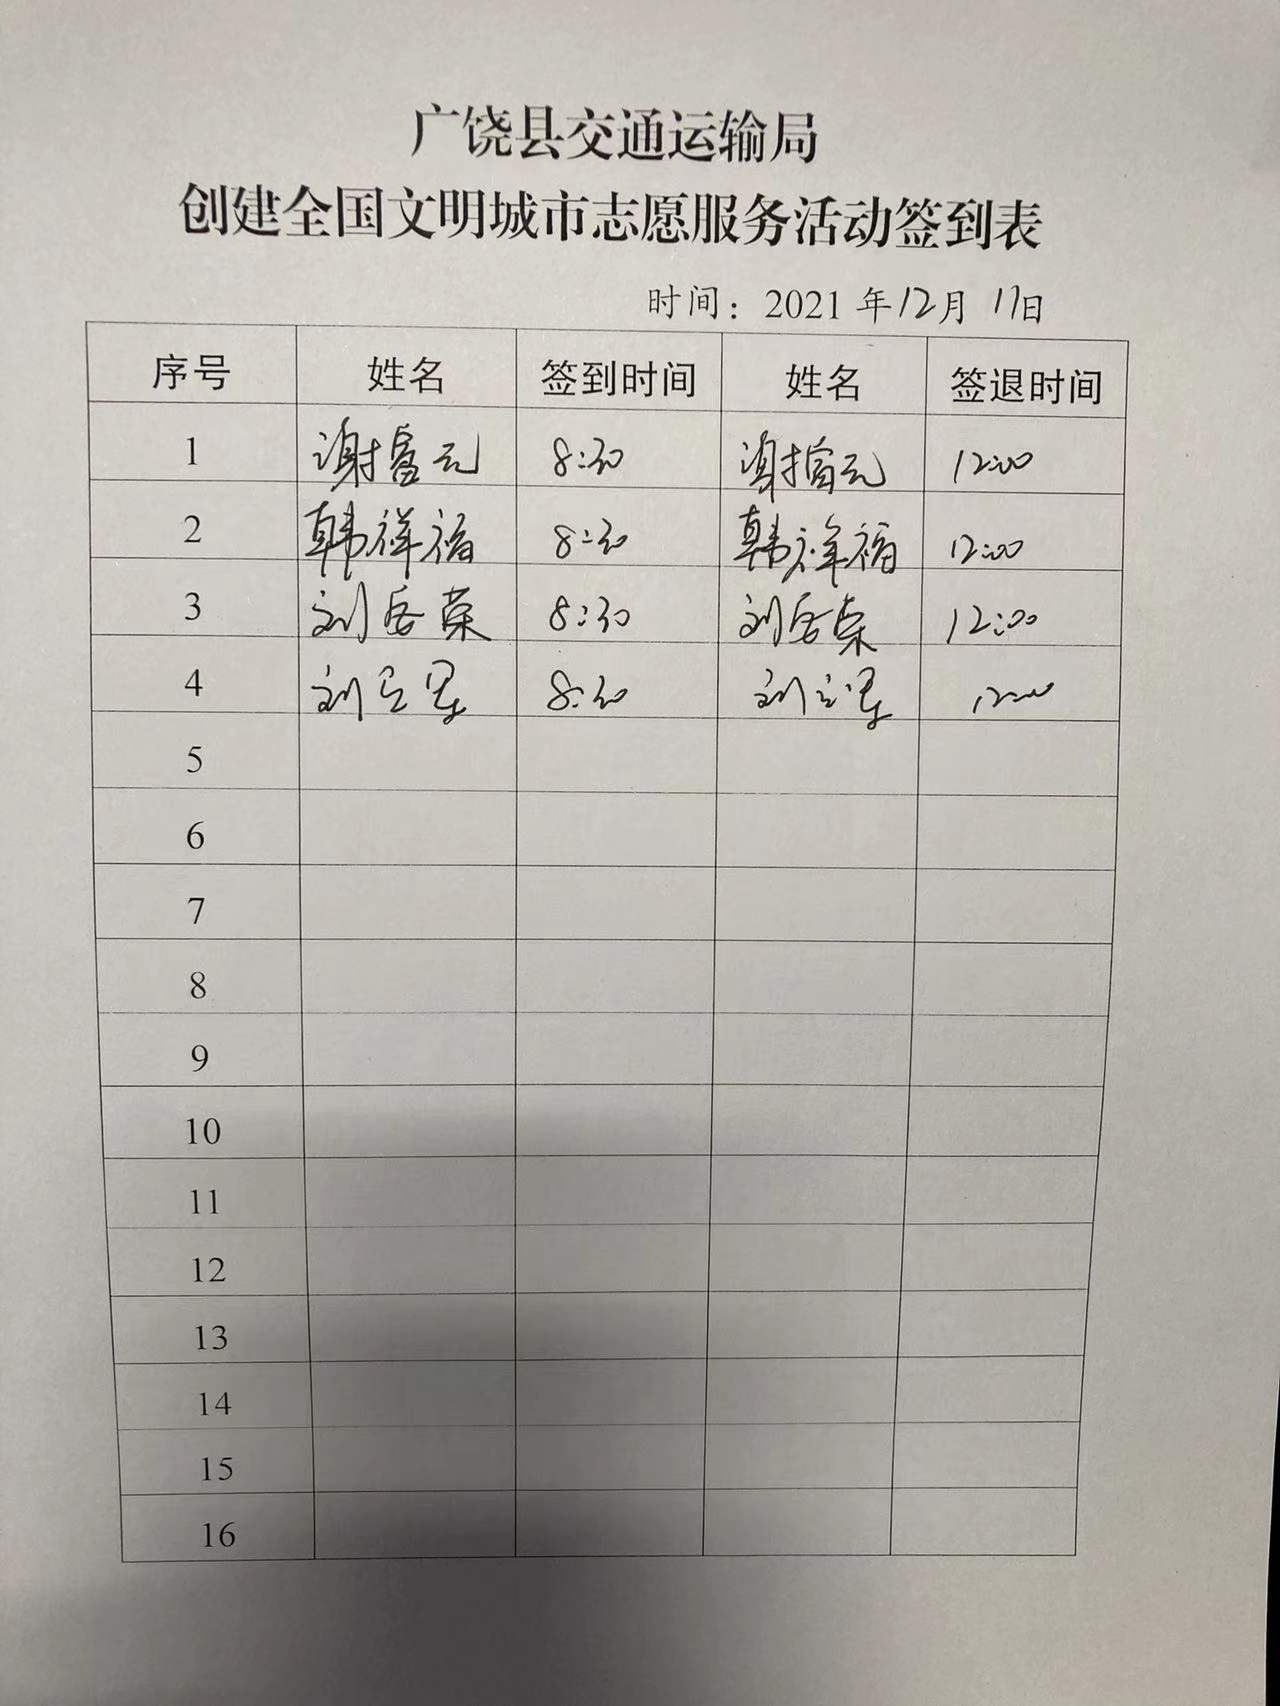 广饶县交通运输局
创建全国文明城市志愿服务活动签到表
时间：2021年12月17日
序号 姓名 签到时间 姓名 签退时间
1 谢 元 8:30 谢 元 12:00
2 韩祥福 8:30 韩祥福 12:00
3 刘岳荣 8:30 刘岳荣 12:00
4 刘立军 8:30 刘立军 12:00
5
6
7
8
9
10
11
12
13
14
15
16